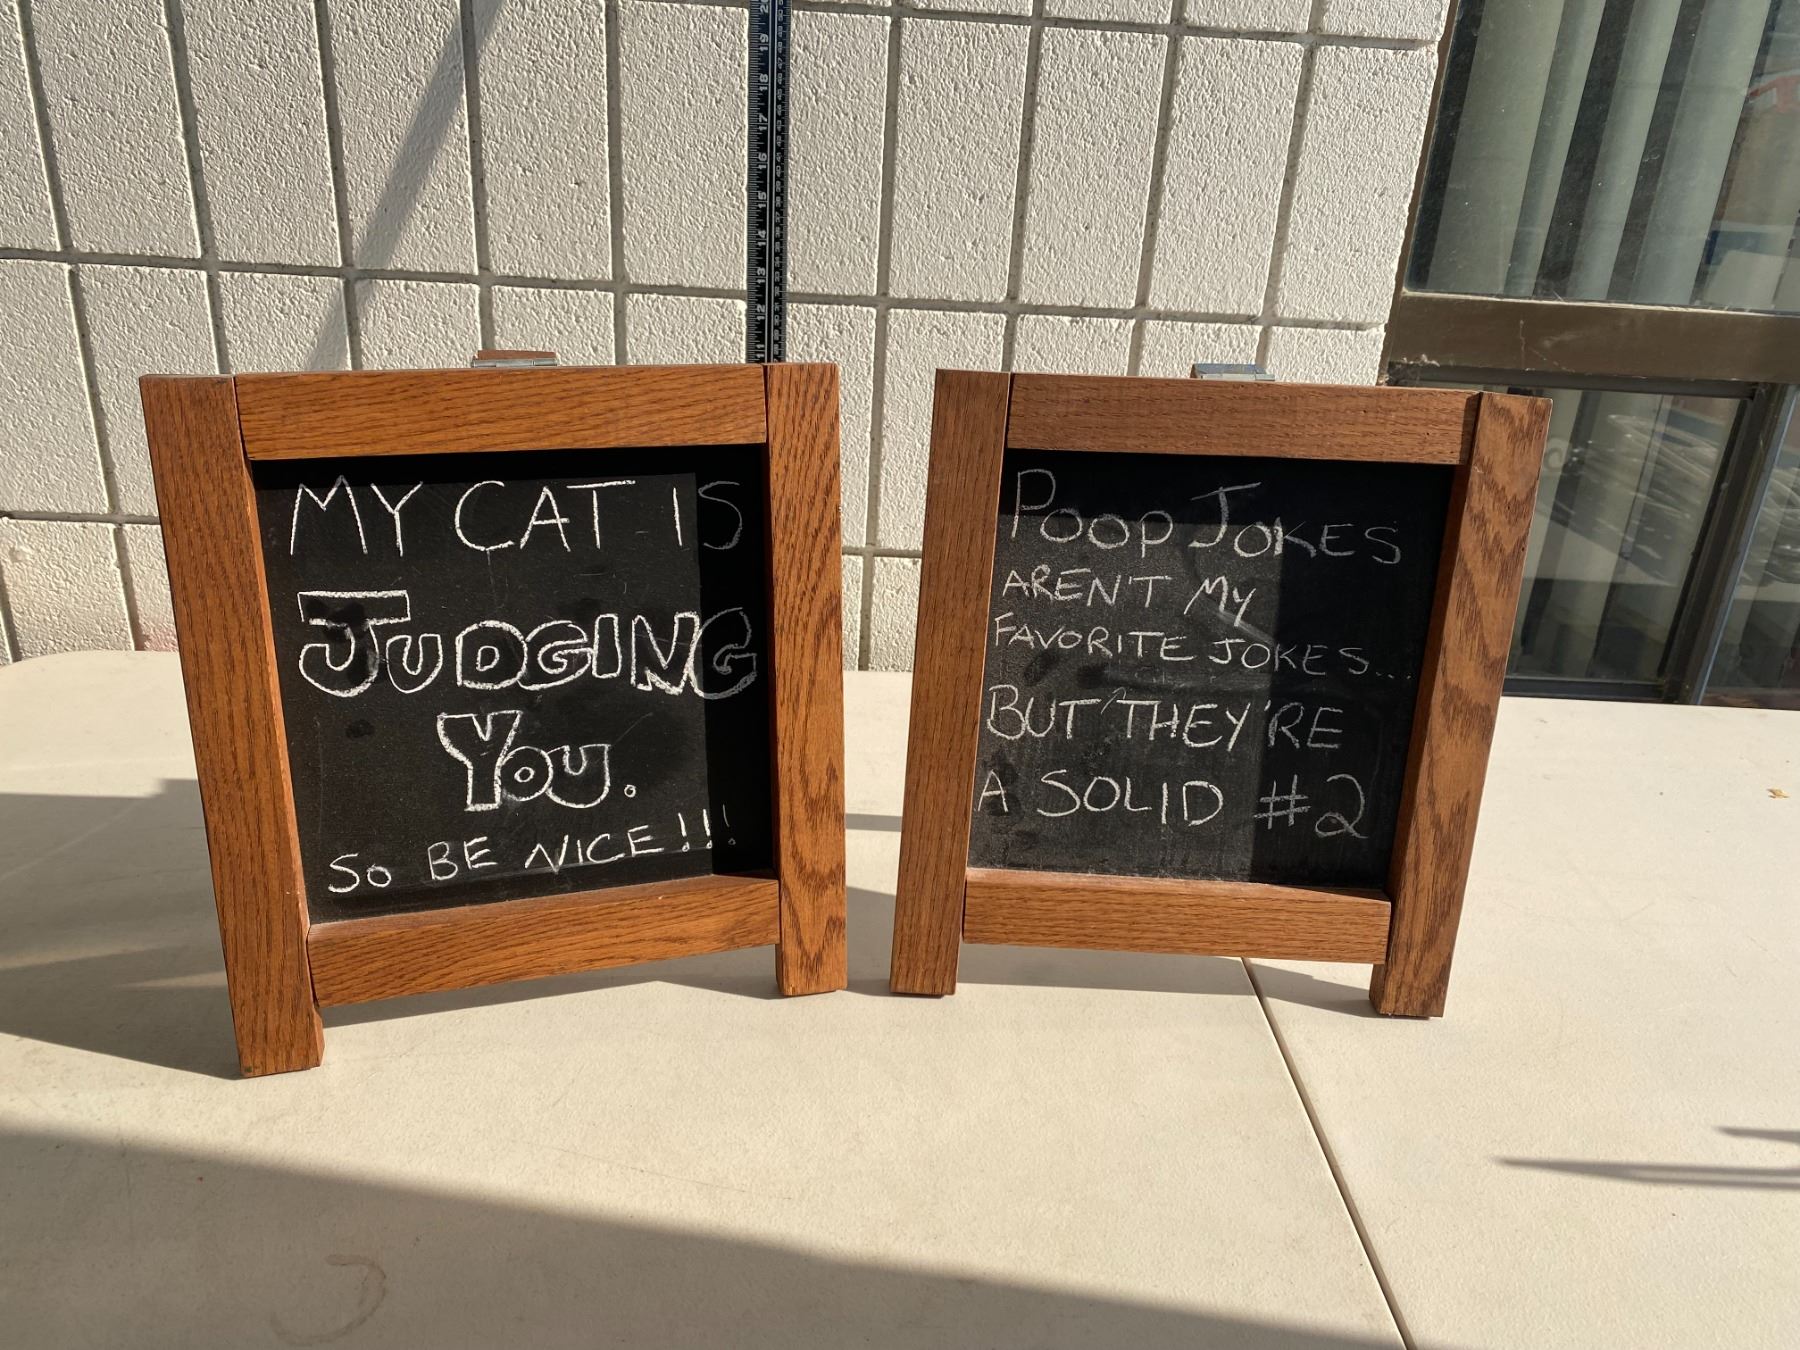 MY CAT IS
JUDGING
YOU.
SO BE NICE!!!
POOP JOKES
AREN'T MY
FAVORITE JOKES...
BUT THEY'RE
A SOLID #2
20
19
18
17
16
15
14
13
12
11